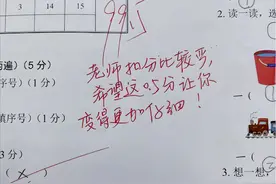 99.5
遍）（5分）
二、读一读，选
3 14 15
1 1 1
老师扣分比较严，
序号）（1分）
希望这0.5分让你
变得更加仔细！
填序号）（1分）
3分）
（×）
3. 想一想，